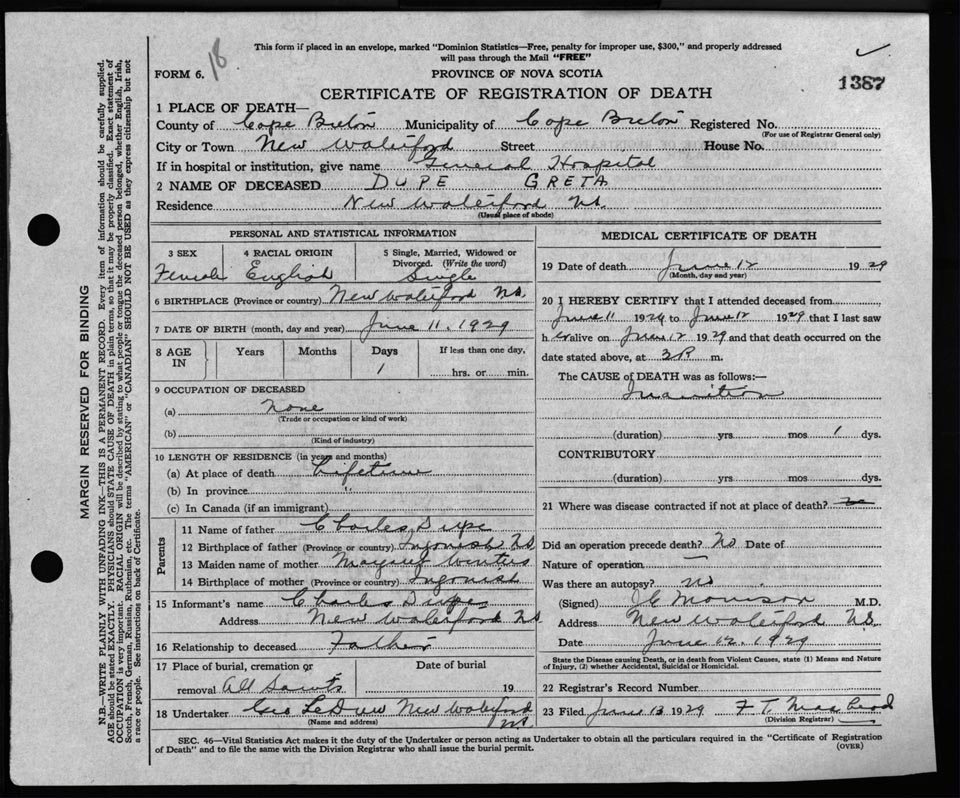 18
This form if placed in an envelope, marked "Dominion Statistics—Free, penalty for improper use, $300," and properly addressed
will pass through the Mail "FREE"
FORM 6.
PROVINCE OF NOVA SCOTIA
1387
CERTIFICATE OF REGISTRATION OF DEATH
1 PLACE OF DEATH—
County of Cape Breton Municipality of Cape Breton Registered No.
(For use of Registrar General only)
City or Town New Waterford Street House No.
If in hospital or institution, give name General Hospital
2 NAME OF DECEASED DUPE GRETA
Residence New Waterford NS.
(Usual place of abode)
PERSONAL AND STATISTICAL INFORMATION
3 SEX 4 RACIAL ORIGIN 5 Single, Married, Widowed or
Divorced. (Write the word)
Female English Single
6 BIRTHPLACE (Province or country) New Waterford NS.
7 DATE OF BIRTH (month, day and year) June 11. 1929
8 AGE IN Years Months Days If less than one day,
1 hrs. or min.
9 OCCUPATION OF DECEASED
(a) none
(Trade or occupation or kind of work)
(b)
(Kind of industry)
10 LENGTH OF RESIDENCE (in years and months)
(a) At place of death Lifetime
(b) In province "
(c) In Canada (if an immigrant)
Parents
11 Name of father Charles Dupe
12 Birthplace of father (Province or country) Ingonish NS
13 Maiden name of mother Winters
14 Birthplace of mother (Province or country) Ingonish
15 Informant's name Charles Dupe
Address New Waterford NS
16 Relationship to deceased Father
17 Place of burial, cremation or Date of burial
removal All Saints 19
18 Undertaker Geo LeDrew New Waterford
(Name and address) NS
MEDICAL CERTIFICATE OF DEATH
19 Date of death June 12 1929
(Month, day and year)
20 I HEREBY CERTIFY that I attended deceased from
June 11 1929 to June 12 1929 that I last saw
h er alive on June 12 1929 and that death occurred on the
date stated above, at 3 P m.
The CAUSE of DEATH was as follows:—
Inanition
(duration) yrs mos 1 dys.
CONTRIBUTORY
(duration) yrs mos dys.
21 Where was disease contracted if not at place of death?
Did an operation precede death? No Date of
Nature of operation —
Was there an autopsy? no
(Signed) Morrison M.D.
Address New Waterford NS.
Date June 12. 1929
State the Disease causing Death, or in death from Violent Causes, state (1) Means and Nature
of Injury, (2) whether Accidental, Suicidal or Homicidal.
22 Registrar's Record Number
23 Filed June 13 1929 F T Mac Leod
(Division Registrar)
SEC. 46—Vital Statistics Act makes it the duty of the Undertaker or person acting as Undertaker to obtain all the particulars required in the "Certificate of Registration
of Death" and to file the same with the Division Registrar who shall issue the burial permit.
(OVER)
MARGIN RESERVED FOR BINDING
N.B.—WRITE PLAINLY WITH UNFADING INK—THIS IS A PERMANENT RECORD. Every item of information should be carefully supplied.
AGE should be stated EXACTLY. PHYSICIANS should STATE CAUSE OF DEATH in plain terms, so that it may be properly classified. Exact statement of
OCCUPATION is very important. RACIAL ORIGIN will be described by stating to what people or tongue the deceased person belonged, whether English, Irish,
Scotch, French, German, Russian, Ruthenian, etc. The terms "AMERICAN" or "CANADIAN" SHOULD NOT BE USED as they express citizenship but not
a race or people. See instructions on back of Certificate.